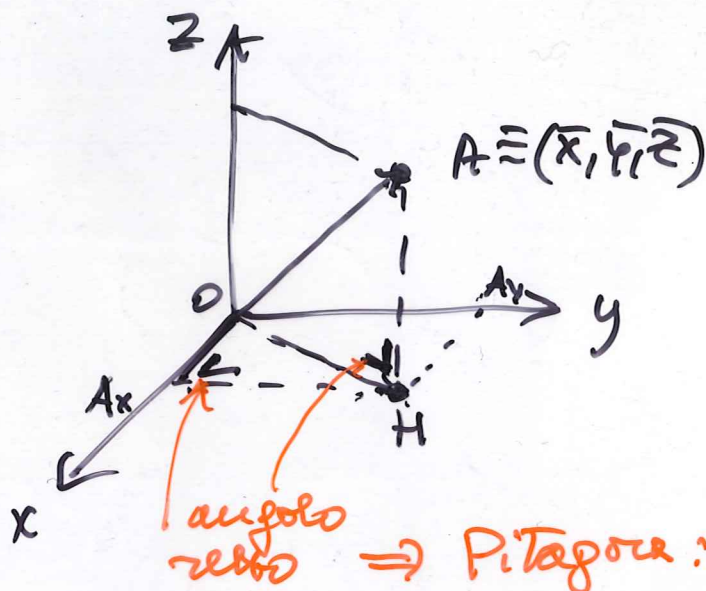 z
A ≡ (x̄, ȳ, z̄)
O
Ay
y
Ax
H
x
angolo
retto ⇒ Pitagora: